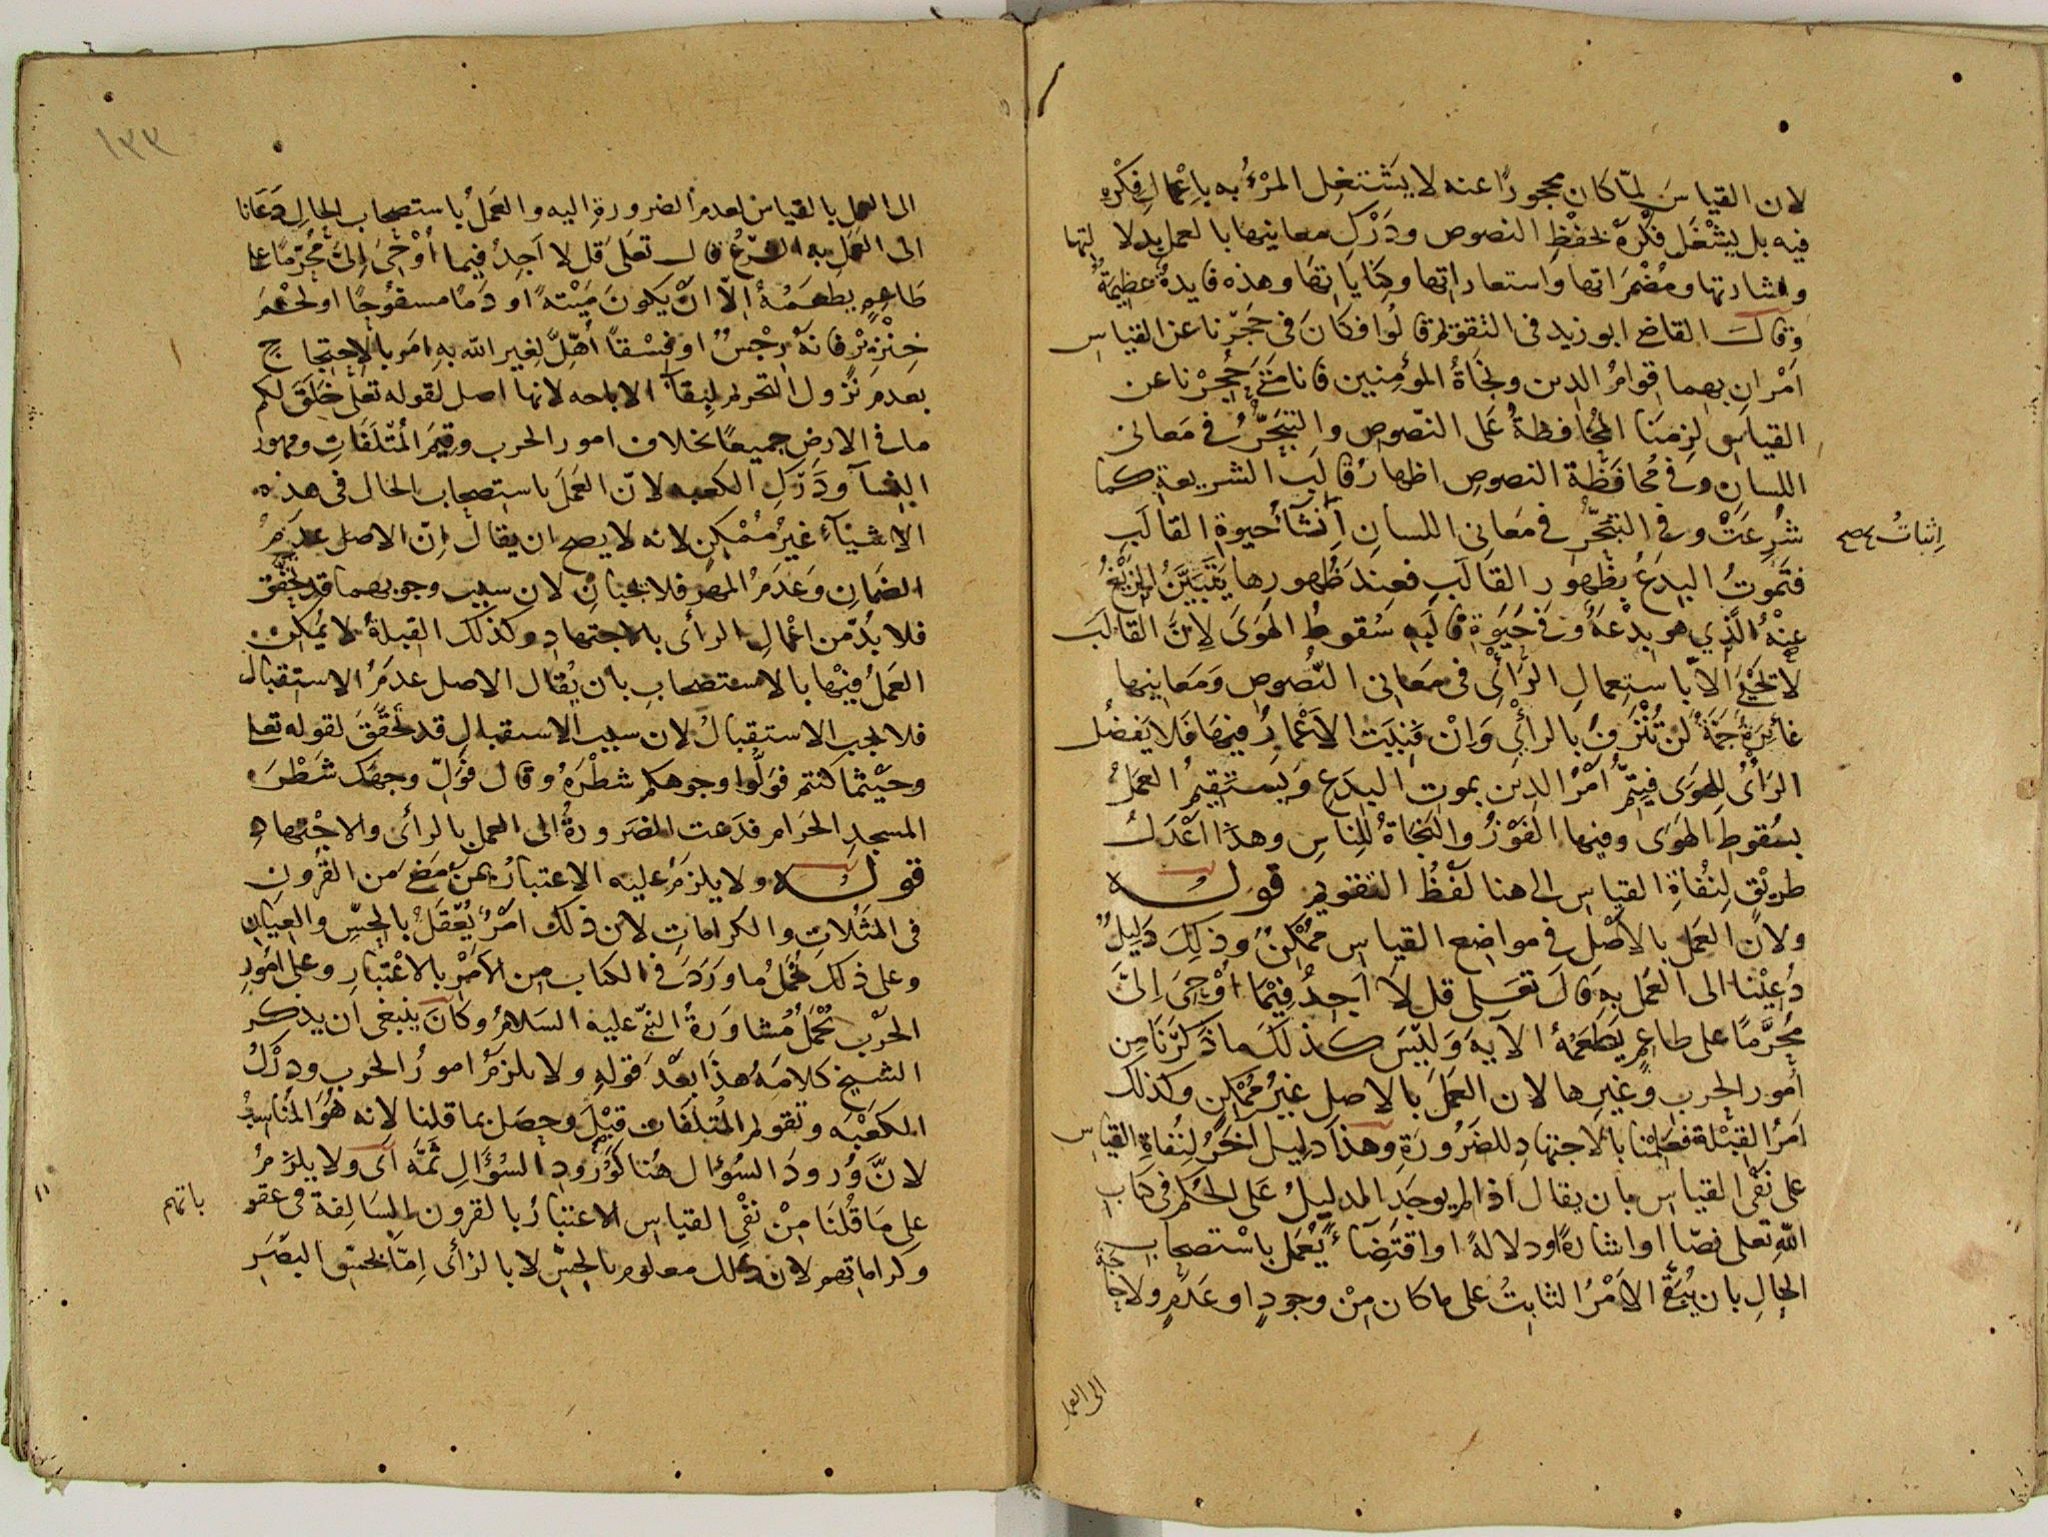 لان القياسَ لمّا كان محجورًا عنه لا يشتغل المرْءُ به باِعْمالِ فِكْرِه
فيه بل يشغَل فكرَهُ بحفْظِ النصوص ودَرْكِ معانيها بالعمل بدلالتها
واشارتها ومُضْمَراتها واستعاراتها وكِنَاياتها وهذه فايدةٌ عظيمةٌ
وقال القاضى ابو زيد فى التقويم قالُوا فكانَ فى حَجْرنا عن القياس
اَمْرانِ بهما قوامُ الدين ونجَاةُ المؤمنين فانا متَى حُجِرْنا عن
القياسِ لزِمَنَا المُحافظةُ عَلى النّصوصِ والتبحُّرُ فى مَعانى
اللسانِ وَفى مُحافَظَة النصوصِ اظهارُ قالَبِ الشريعةِ كما
شُرِعَتْ وفى التبحُّر فى مَعانى اللسانِ اِنشآءُ حيوةِ القالَبِ
اِثباتُ صح
فتَموتُ البِدَعُ بظُهور القالَبِ فعِندَ ظُهورِها يَتَبيَّنُ الزيْغُ
عنْهُ الّذِي هو بِدْعَةٌ وَفى حَيوةِ قالَبِهِ سُقوطُ الهَوَى لِانَّ القالَبَ
لا تَحْيَى اِلاّ باستعمالِ الرَّأْىِ فى مَعانى النّصُوصِ وَمَعانيها
غائِرةٌ جَمّةٌ لَن تُنْزَفَ بالرأْىِ وَاِنْ فَنِيَت الاَعْمارُ فيهَا فَلا يَفضُل
الرَأْىُ للهَوَى فيتِمُّ اَمْرُ الدِين بموتِ البِدَعِ وَيستَقِيمُ العمَلُ
بسُقوطِ الهَوَى وفيها الفَوْزُ والنجَاةُ للناسِ وهذا اَعْدَلُ
طريْقٍ لِنُفاةِ القياسِ الى هنا لَفْظُ التقويم قوله
ولانّ العَمل بالاَصْل فى مواضع القياسِ مُمْكِنٌ وذلِكَ دَليلٌ
دُعِيْنا الى العَملِ بهِ قالَ تعَالى قل لاَ اَجِدُ فِيْمَا اُوْحِىَ اِلىَّ
مُحَرَّمًا على طاعِمٍ يَطْعَمُهُ الآيه وَلَيْسَ كذلكَ ماذَكَرْنَا مِن
اُمور الحربِ وَغيرِها لان العَمَلَ بالاصلِ غيرُ مُمْكِنٍ وكذلك
اَمرُ القِبْلةِ فعَمِلْنا بالاجتهادِ للضَرُورَةِ وهذا دليل اخَرُ لنُفاةِ القياس
على نَفْىِ القياسِ بان يقال اذا لم يوجَدِ الدليلُ عَلى الحُكْم فى كتابِ
اللهِ تعالى نصّا او اشارةً او دلالةً او اقتضَآءً يُعْمَل باسْتصحابِ
الحالِ بان يُبْقَى الاَمْرُ الثابتُ على ما كان مِنْ وجودٍ او عَدَمٍ ولا حاجةَ
الى العمل
١٣٣
الى العمل بالقياس لعدم الضرورةِ اليه والعَملُ باستصحاب الحالِ دَعَانا
الى العَمَلِ به الشرْعُ قال تعَلىَ قل لا اَجِدُ فيما اُوْحِىَ اِلىَّ مُحرّمًا على
طَاعِمٍ يطعَمُهُ اِلاّ اَنْ يكونَ مَيْتةً او دَمًا مسفوُحًا او لحْمَ
خِنْزِيْرٍ فانهُ رِجْسٌ او فِسْقاً اُهِلَّ لِغيرِ الله بهِ امَر بالاحتِجاج
بعدم نزُولِ التحريم لِبقآءِ الاباحه لانها اصل لقوله تعلى خلَقَ لكم
ما فى الارضِ جميعًا بخلاف امورِ الحرب وقِيَم المُتْلَفَاتِ ومهور
النِسآء ودَرْكِ الكعبه لانّ العَملَ باستصحاب الحال فى هذه
الاشيآءِ غيرُ مُمْكِنٍ لانه لا يصح ان يقال اِنّ الاصل عدَمُ
الضمَانِ وَعَدَمُ المهر فلا يجبانِ لان سبب وجوبهما قد تحقّق
فلا بُدّ من اِعْمال الرأى بالاجتهادِ وكذلك القِبلةُ لا يُمْكِن
العَمَلُ فيْها بالاستصحابِ بان يُقال الاصل عدَمُ الاستِقبال
فلا يجب الاستقبالُ لان سبب الاستقبالِ قد تحقّقَ لقوله تعلى
وحَيْثما كنتم فوَلُّوا وجوهكم شَطْرَهُ وقال فوَلِّ وجهَك شَطْرَ
المسجدِ الحَرَام فدَعت الضَرورةُ الى العمل بالرأى والاجْتهادِ
قوله ولا يلزمُ عليه الاعتبارُ بمَن مَضَى من القُرُونِ
فى المَثُلاتِ والكراماتِ لان ذلك امْرٌ يُعْقَلُ بالحِسِّ والعِيَانِ
وعلى ذلك يُحْمَلُ ما وَرَدَ فى الكتاب مِن الاَمْرِ بالاعْتبار وعلى اُمُورِ
الحَرْبِ تُحْمَلُ مُشاوَرةُ النبىّ عليه السَلامُ وكانَ ينبغى ان يذكر
الشيخ كلامَهُ هذا بَعْدَ قوله ولا يلزمُ امورُ الحرب ودَرْكُ
الكعْبَه وتقويم المُتلَفَات قِيْلَ وحصَل بما قلنا لانه هُوَ المُناسِبُ
لانَّ وُرودَ السُؤال هُنا كوُرُودِ السُؤَالِ ثَمَّه اَى ولا يلزَمُ
على مَا قُلنَا مِنْ نفْىِ القياسِ الاعتبَارُ بالقرون السَالِفةِ فى عقوباتهم
وكراماتهم لان ذلك معلوم بالحِسِّ لا بالرأى اِمّا بحسِّ البصَرِ